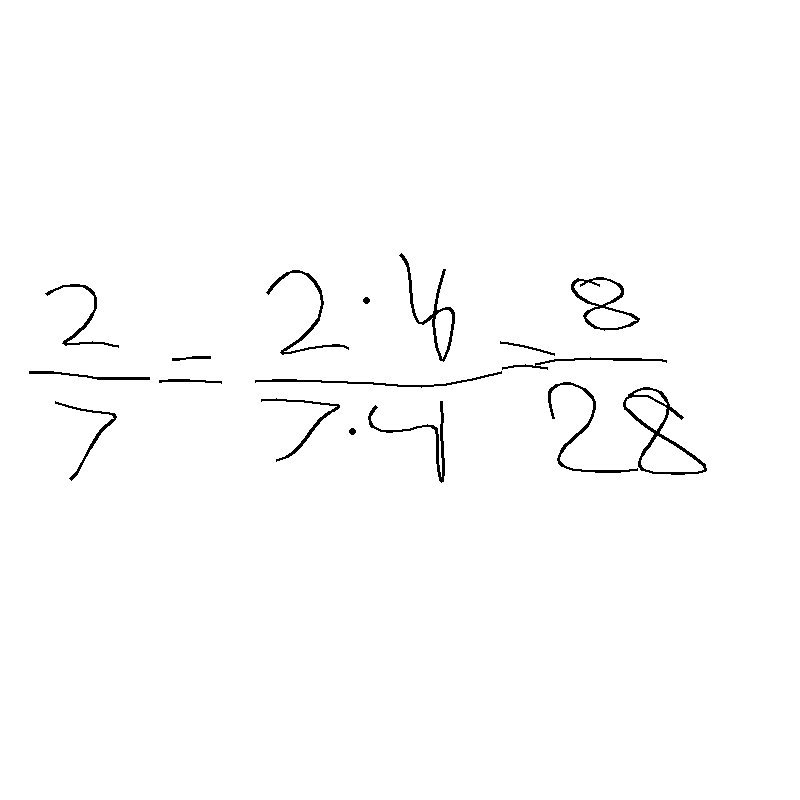 2/7 = 2·4/7·4 = 8/28